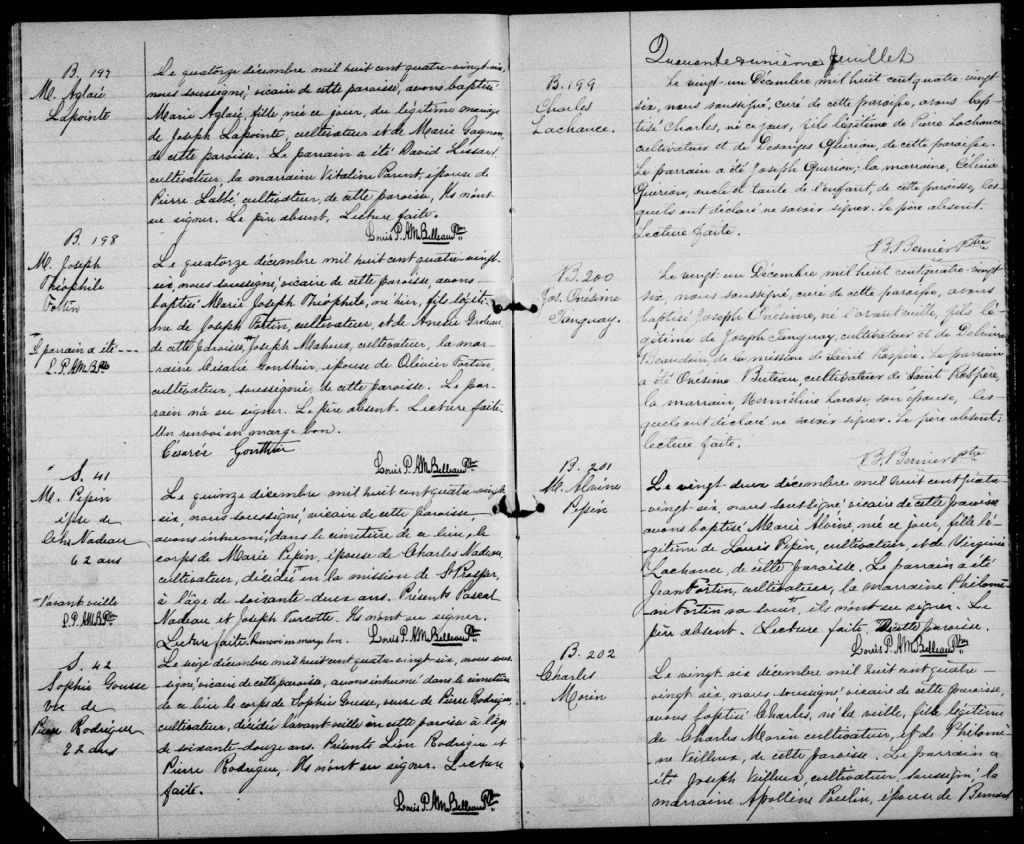 B. 197
M. Aglaé
Lapointe
Le quatorze décembre mil huit cent quatre-vingt-six,
nous soussigné, vicaire de cette paroisse, avons baptisé
Marie Aglaé, fille née ce jour, du légitime mariage
de Joseph Lapointe, cultivateur et de Marie Gagnon,
de cette paroisse. Le parrain a été David Lessard
cultivateur, la marraine Vitaline Parent, épouse de
Pierre Labbé, cultivateur, de cette paroisse, Ils n'ont
su signer. Le père absent. Lecture faite.
Louis P. AM Belleau Ptre
B. 198
M. Joseph
Théophile
Fortin
Le quatorze décembre mil huit cent quatre-vingt-
six, nous soussigné, vicaire de cette paroisse, avons
baptisé Marie Joseph Théophile, né hier, fils légiti-
me de Joseph Fortin, cultivateur, et de
de cette paroisse, Joseph Maheux, cultivateur, la mar-
raine Césarie Gonthier, épouse de Olivier Fortin,
cultivateur, soussignée, de cette paroisse. Le par-
rain n'a su signer. Le père absent. Lecture faite.
Un renvoi en marge bon.
Césarée Gonthier
Louis P. AM Belleau Ptre
"Le parrain a été ---
L. P. AM B Ptre
S. 41
M. Pepin
épse de
Chs Nadeau
62 ans
Le quinze décembre mil huit cent quatre-vingt-
six, nous soussigné, vicaire de cette paroisse,
avons inhumé, dans le cimetière de ce lieu, le
corps de Marie Pepin, épouse de Charles Nadeau,
cultivateur, décédée " en la mission de St Prosper,
à l'âge de soixante-deux ans. Présents Pascal
Nadeau et Joseph Turcotte. Ils n'ont su signer.
Lecture faite. Renvoi en marge bon. Louis P. AM Belleau Ptre
"l'avant veille
L. P. AM B Ptre
S. 42
Sophie Gousse
vve de
Pierre Rodrigue
72 ans
Le seize décembre mil huit cent quatre-vingt-six, nous sous-
signé, vicaire de cette paroisse, avons inhumé dans le cimetière
de ce lieu le corps de Sophie Gousse, veuve de Pierre Rodrigue,
cultivateur, décédée l'avant veille en cette paroisse à l'âge
de soixante-douze ans. Présents Léon Rodrigue et
Pierre Rodrigue, Ils n'ont su signer. Lecture
faite.
Louis P. AM Belleau Ptre
Quarante-unième feuillet
B. 199
Charles
Lachance.
Le vingt-un Décembre mil huit cent quatre-vingt
six, nous soussigné, curé de cette paroisse, avons bap-
tisé Charles, né ce jour, fils légitime de Pierre Lachance
cultivateur et de Desanges Querion, de cette paroisse.
Le parrain a été Joseph Querion; la marraine, Célina
Querion, oncle et tante de l'enfant, de cette paroisse, les-
quels ont déclaré ne savoir signer. Le père absent.
Lecture faite.
B. Bernier Ptre
B. 200
Jos. Onésime
Tanguay.
Le vingt-un Décembre mil huit cent quatre-vingt
six, nous soussigné, curé de cette paroisse, avons
baptisé Joseph Onésime, né l'avant veille, fils lé-
gitime de Joseph Tanguay, cultivateur et de Delvina
Beaudoin, de la mission de Saint Prospère. Le parrain
a été Onésime Buteau, cultivateur de Saint Prospère,
la marraine, Herméline Larose, son épouse, les-
quels ont déclaré ne savoir signer. Le père absent.
Lecture faite.
B. Bernier Ptre
B. 201
M. Alvine
Pepin
Le vingt deux décembre mil huit cent quatre-
vingt-six, nous soussigné, vicaire de cette paroisse
avons baptisé Marie Alvine, née ce jour, fille lé-
gitime de Louis Pepin, cultivateur, et de Virginie
Lachance, de cette paroisse. Le parrain a été
Jean Fortin, cultivateur, la marraine Philomè-
ne Fortin sa soeur, ils n'ont su signer. Le
père absent. Lecture faite. De cette paroisse.
Louis P. AM Belleau Ptre
B. 202
Charles
Morin
Le vingt-six décembre mil huit cent quatre-
vingt six nous soussigné, vicaire de cette paroisse,
avons baptisé Charles, né la veille, fils légitime
de Charles Morin cultivateur, et de Philomè-
ne Veilleux, de cette paroisse. Le parrain a
été Joseph Veilleux, cultivateur, soussigné, la
marraine Apolline Poulin, épouse de Bernard